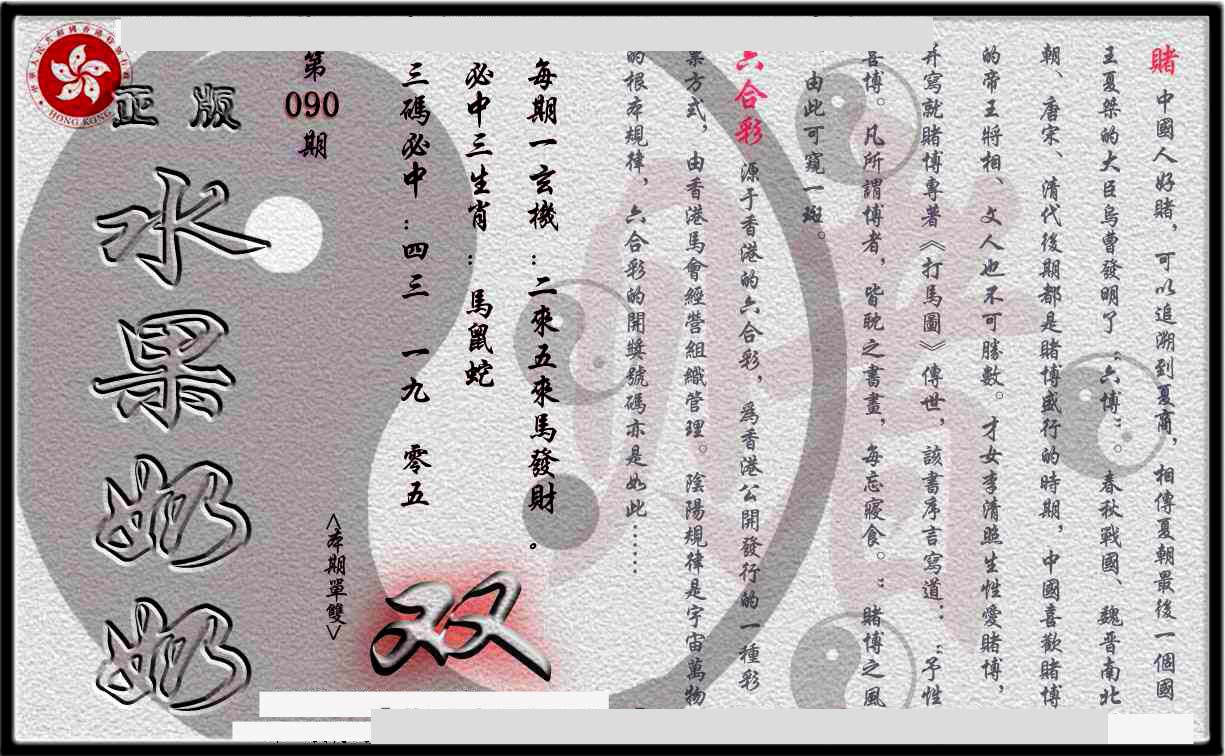 賭 中國人好賭，可以追溯到夏商，相傳夏朝最後一個國
王夏桀的大臣烏曹發明了“六博”。春秋戰國、魏晉南北
朝、唐宋、清代後期都是賭博盛行的時期，中國喜歡賭博
的帝王將相、文人也不可勝數。才女李清照生性愛賭博，
并寫就賭博專著《打馬圖》傳世，該書序言寫道：“予性
喜博。凡所謂博者，皆眈之書畫，每忘寢食。“賭博之風
由此可窺一斑。
六合彩 源于香港的六合彩，爲香港公開發行的一種彩
票方式，由香港馬會經營組織管理。陰陽規律是宇宙萬物
的根本規律，六合彩的開獎號碼亦是如此……
每期一玄機：二來五來馬發財。
必中三生肖：馬鼠蛇
三碼必中：四三 一九 零五
<本期單雙>
双
第
090
期
正版
水果奶奶
HONG KONG